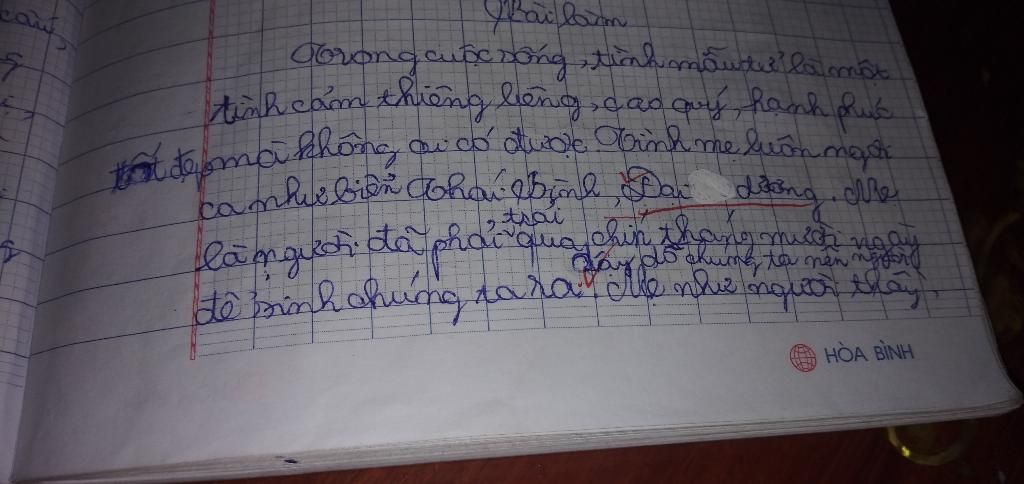 Bài làm
Trong cuộc sống, tình mẫu tử là một
tình cảm thiêng liêng, cao quý, hạnh phúc
đẹp mà không ai có được. Tình mẹ luôn ngọt
ca như biển Thái Bình, Đại dương. Mẹ
là người đã phải trải qua chín tháng mười ngày
để sinh chúng ta ra. Mẹ như người thầy,
dạy dỗ chúng ta nên người
HÒA BÌNH